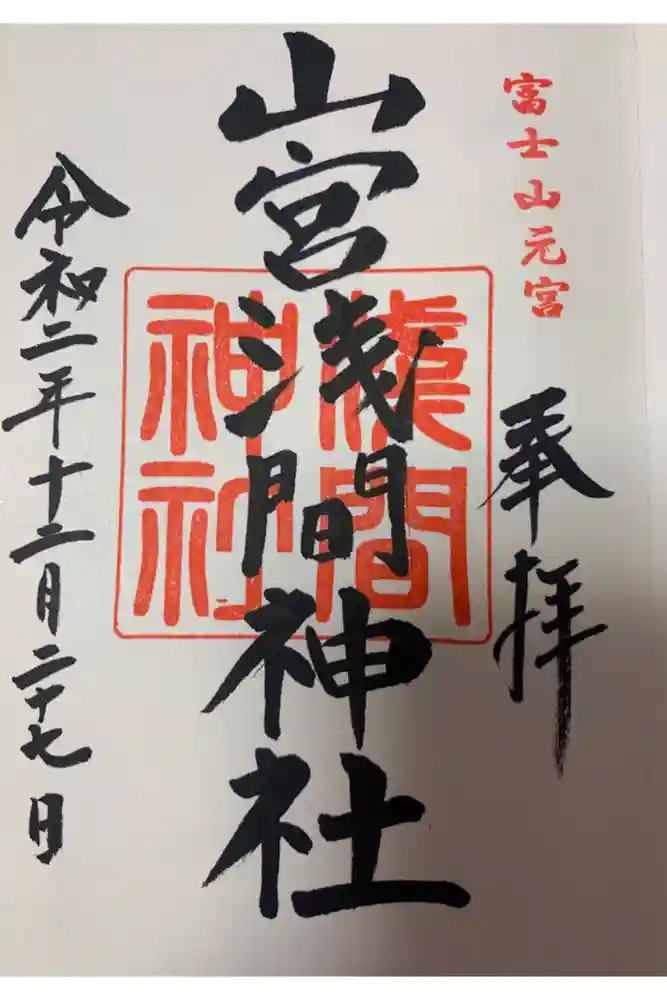 富士山元宮
奉拝
山宮浅間神社
淺間
神社
令和二年十二月二十七日